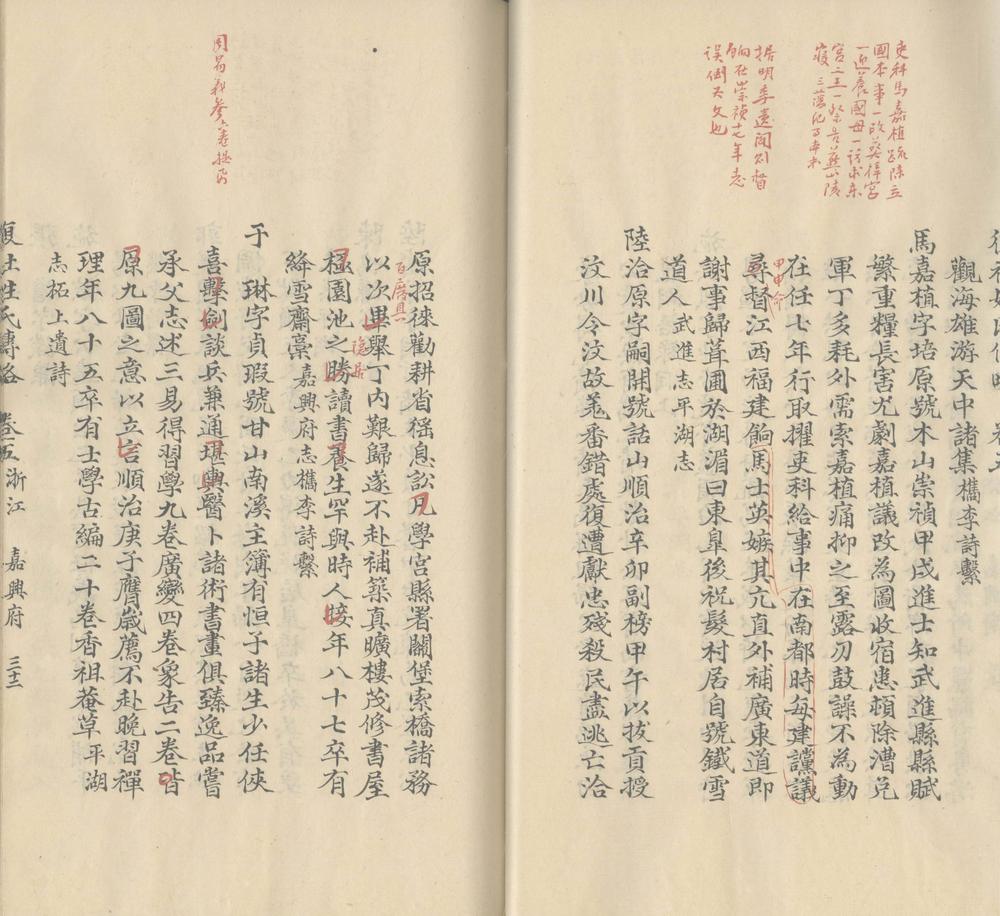 觀海雄游天中諸集檇李詩繫
馬嘉植字培原號木山崇禎甲戌進士知武進縣縣賦
繁重糧長害尤劇嘉植議改為圖收宿患頓除漕兌
軍丁多耗外需索嘉植痛抑之至露刃鼓譟不為動
在任七年行取擢吏科給事中在南都時每建讜議
甲申命
尋督江西福建餉馬士英嫉其亢直外補廣東道即
謝事歸葺圃於湖湄曰東臯後祝髮村居自號鐵雪
道人武進志平湖志
陸洽原字嗣開號詁山順治辛卯副榜甲午以拔貢授
汶川令汶故羌番錯處復遭獻忠殘殺民盡逃亡洽
吏科馬嘉植疏陳立
國本事一改葬梓宮
一迎養國母一訪求東
宮二王一祭告燕山陵
寢
據明季遺聞則督
餉在崇禎十七年志
誤倒其文也
原招徠勸耕省徭息訟凡學宮縣署關堡索橋諸務
百廢具
以次畢舉丁內艱歸遂不赴補築真曠樓茂修書屋
隱居
極園池之勝讀書養生罕與時人接年八十七卒有
絳雪齋藁嘉興府志檇李詩繫
于琳字貞瑕號甘山南溪主簿有恒子諸生少任俠
喜擊劍談兵兼通堪輿醫卜諸術書畫俱臻逸品嘗
承父志述三易得習學九卷廣變四卷象告二卷皆
原九圖之意以立言順治庚子膺歲薦不赴晚習禪
理年八十五卒有士學古編二十卷香祖菴草平湖
志柘上遺詩
周易義參六卷提要
復社姓氏傳略 卷五 浙江 嘉興府 三十二